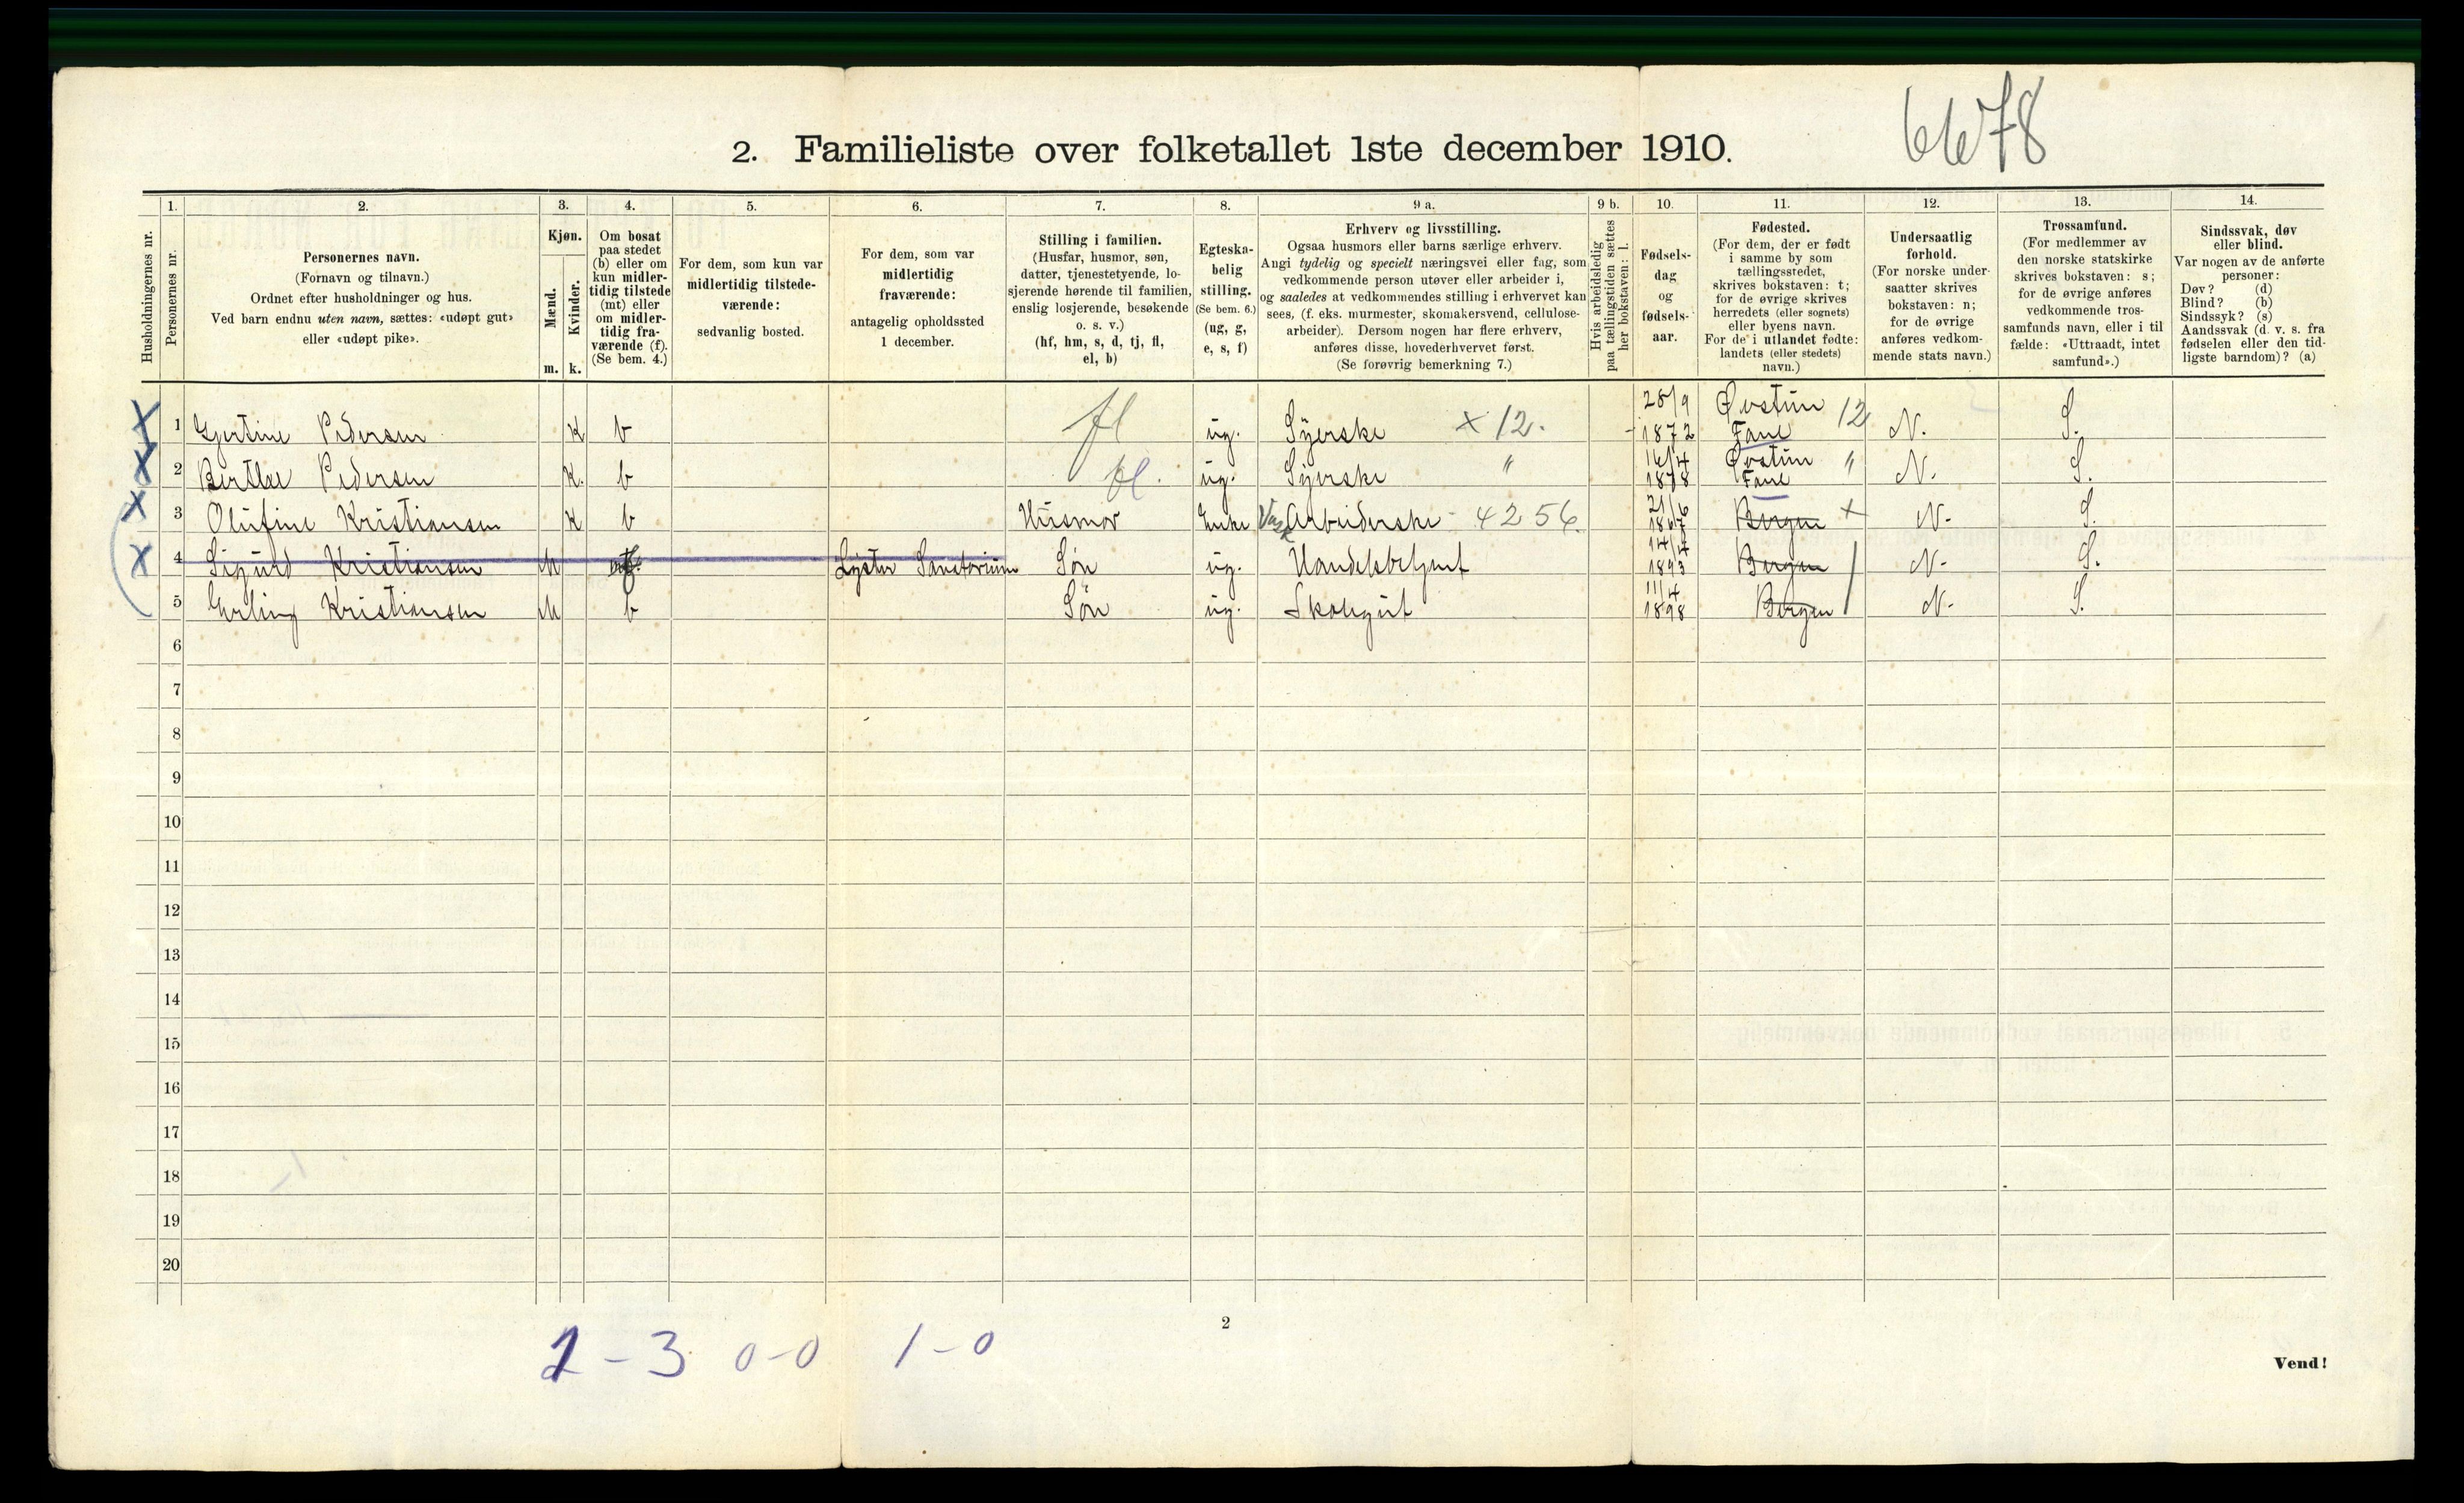 6678
2. Familieliste over folketallet 1ste december 1910.
Husholdningernes nr.
1. Personernes nr.
2. Personernes navn. (Fornavn og tilnavn.) Ordnet efter husholdninger og hus. Ved barn endnu uten navn, sættes: «udøpt gut» eller «udøpt pike».
3. Kjøn. Mænd. m. Kvinder. k.
4. Om bosat paa stedet (b) eller om kun midler-tidig tilstede (mt) eller om midler-tidig fra-værende (f). (Se bem. 4.)
5. For dem, som kun var midlertidig tilstede-værende: sedvanlig bosted.
6. For dem, som var midlertidig fraværende: antagelig opholdssted 1 december.
7. Stilling i familien. (Husfar, husmor, søn, datter, tjenestetyende, lo-sjerende hørende til familien, enslig losjerende, besøkende o. s. v.) (hf, hm, s, d, tj, fl, el, b)
8. Egteska-belig stilling. (Se bem. 6.) (ug, g, e, s, f)
9 a. Erhverv og livsstilling. Ogsaa husmors eller barns særlige erhverv. Angi tydelig og specielt næringsvei eller fag, som vedkommende person utøver eller arbeider i, og saaledes at vedkommendes stilling i erhvervet kan sees, (f. eks. murmester, skomakersvend, cellulose-arbeider). Dersom nogen har flere erhverv, anføres disse, hovederhvervet først. (Se forøvrig bemerkning 7.)
9 b. Hvis arbeidsledig paa tællingstiden sættes her bokstaven: l.
10. Fødsels-dag og fødsels-aar.
11. Fødested. (For dem, der er født i samme by som tællingsstedet, skrives bokstaven: t; for de øvrige skrives herredets (eller sognets) eller byens navn. For de i utlandet fødte: landets (eller stedets) navn.)
12. Undersaatlig forhold. (For norske under-saatter skrives bokstaven: n; for de øvrige anføres vedkom-mende stats navn.)
13. Trossamfund. (For medlemmer av den norske statskirke skrives bokstaven: s; for de øvrige anføres vedkommende tros-samfunds navn, eller i til fælde: «Uttraadt, intet samfund».)
14. Sindssvak, døv eller blind. Var nogen av de anførte personer: Døv? (d) Blind? (b) Sindssyk? (s) Aandssvak (d. v. s. fra fødselen eller den tid-ligste barndom)? (a)
X 1 Gjertine Pedersen K b fl ug. Syerske x 12. 28/9 1872 Øvstun Fane 12 N. S.
X 2 Berthe Pedersen K. b fl. ug. Syerske " 16/4 1878 Øvstun Fane " N. S.
X 3 Olufine Kristiansen K b Husmor Enke Vask Arbeiderske 4256. 21/6 1867 Bergen + N. S.
X 4 Sigurd Kristiansen M f Lyster Sanatorium Søn ug. Handelsbetjent 14/4 1893 Bergen N. S.
5 Erling Kristiansen M b Søn ug. Skolegut 11/4 1898 Bergen N. S.
6
7
8
9
10
11
12
13
14
15
16
17
18
19
20
2
1 - 3 0-0 1-0
Vend!